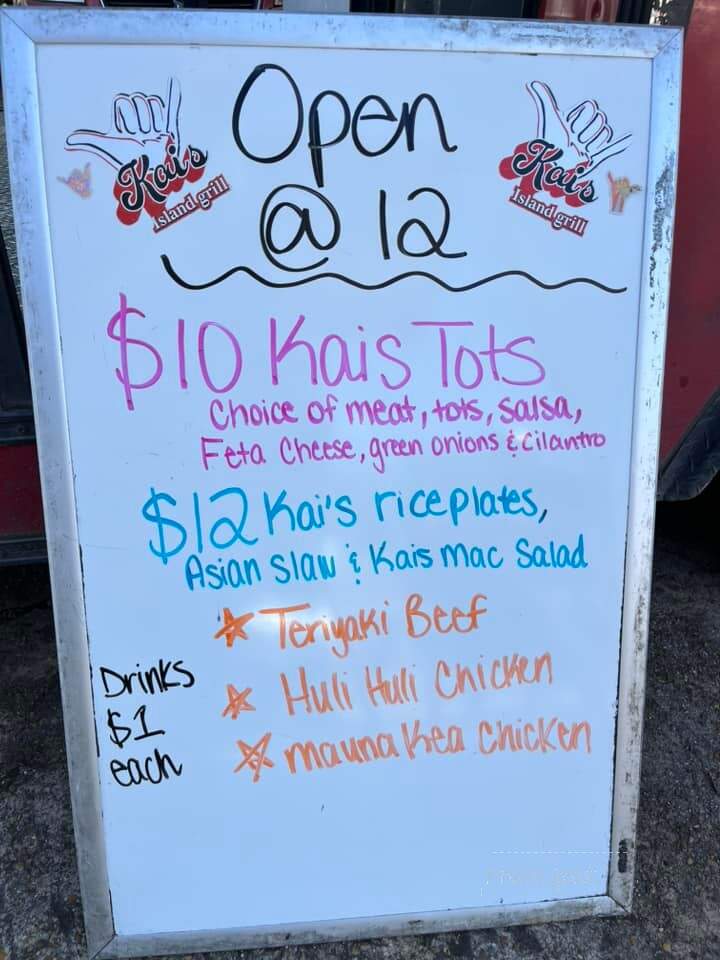 Kai's
Island grill
Open
@ 12
Kai's
Island grill
$10 Kais Tots
Choice of meat, tots, salsa,
Feta Cheese, green onions & Cilantro
$12 Kai's rice plates,
Asian slaw & Kais mac Salad
Teriyaki Beef
Huli Huli Chicken
mauna Kea chicken
Drinks
$1
each